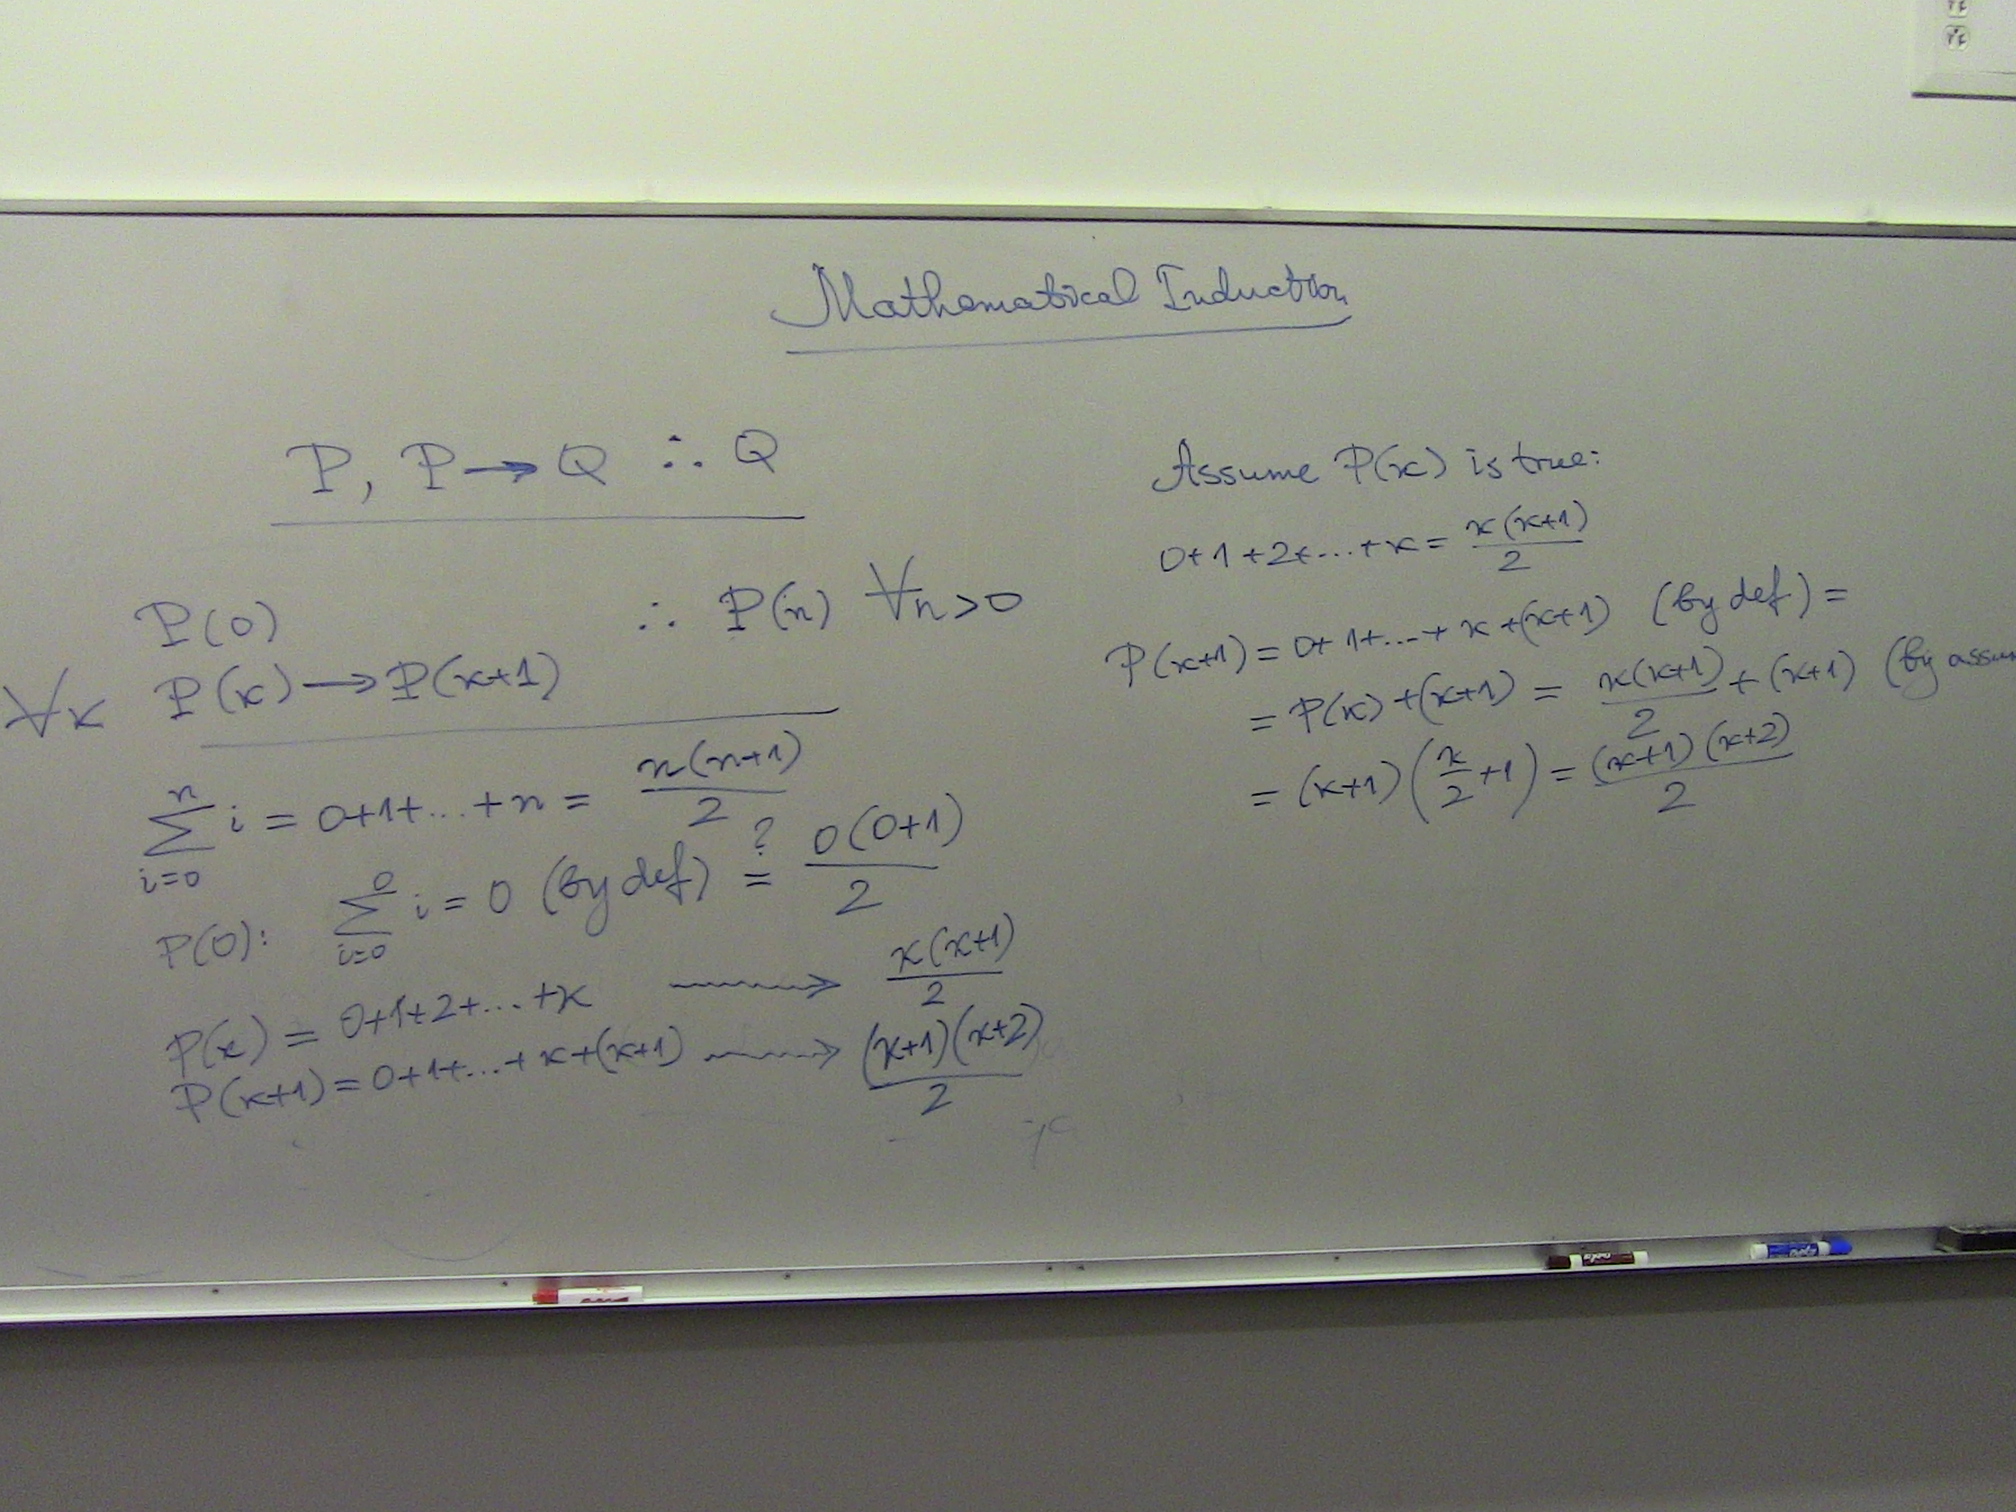 Mathematical Induction
P, P → Q ∴ Q
P(0) ∴ P(n) ∀n>0
∀x P(x) → P(x+1)
∑_{i=0}^{n} i = 0+1+...+n = n(n+1)/2
P(0): ∑_{i=0}^{0} i = 0 (by def) =? 0(0+1)/2
P(x) = 0+1+2+...+x ⟿ x(x+1)/2
P(x+1) = 0+1+...+x+(x+1) ⟿ (x+1)(x+2)/2
Assume P(x) is true:
0+1+2+...+x = x(x+1)/2
P(x+1) = 0+1+...+x+(x+1) (by def) =
= P(x)+(x+1) = x(x+1)/2 + (x+1) (by assum
= (x+1)(x/2+1) = (x+1)(x+2)/2
expo